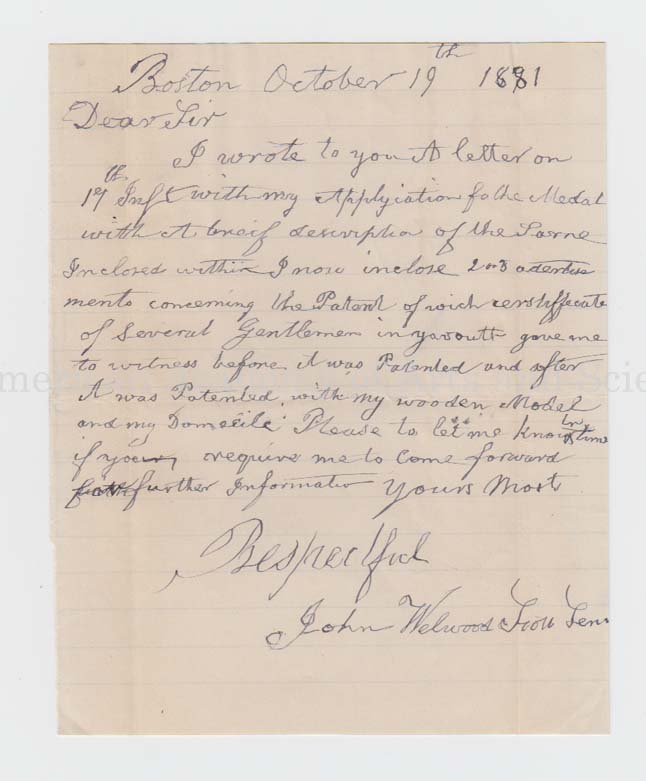 Boston October 19th 1881
Dear Sir
I wrote to you A letter on
17th Inst with my Applyication fo the Medal
with A breif description of the Same
Inclosed within I now inclose 2 or 3 adentise
ments concerning the Patent of wich cerstiffecate
of Several Gentlemen in yarouth gave me
to witness before it was Patented and after
it was Patented, with my wooden Model
and my Domecile Please to let me know in time
if you require me to Come forward
further Informatio Yours Most
Respectful
John Welwood Senr